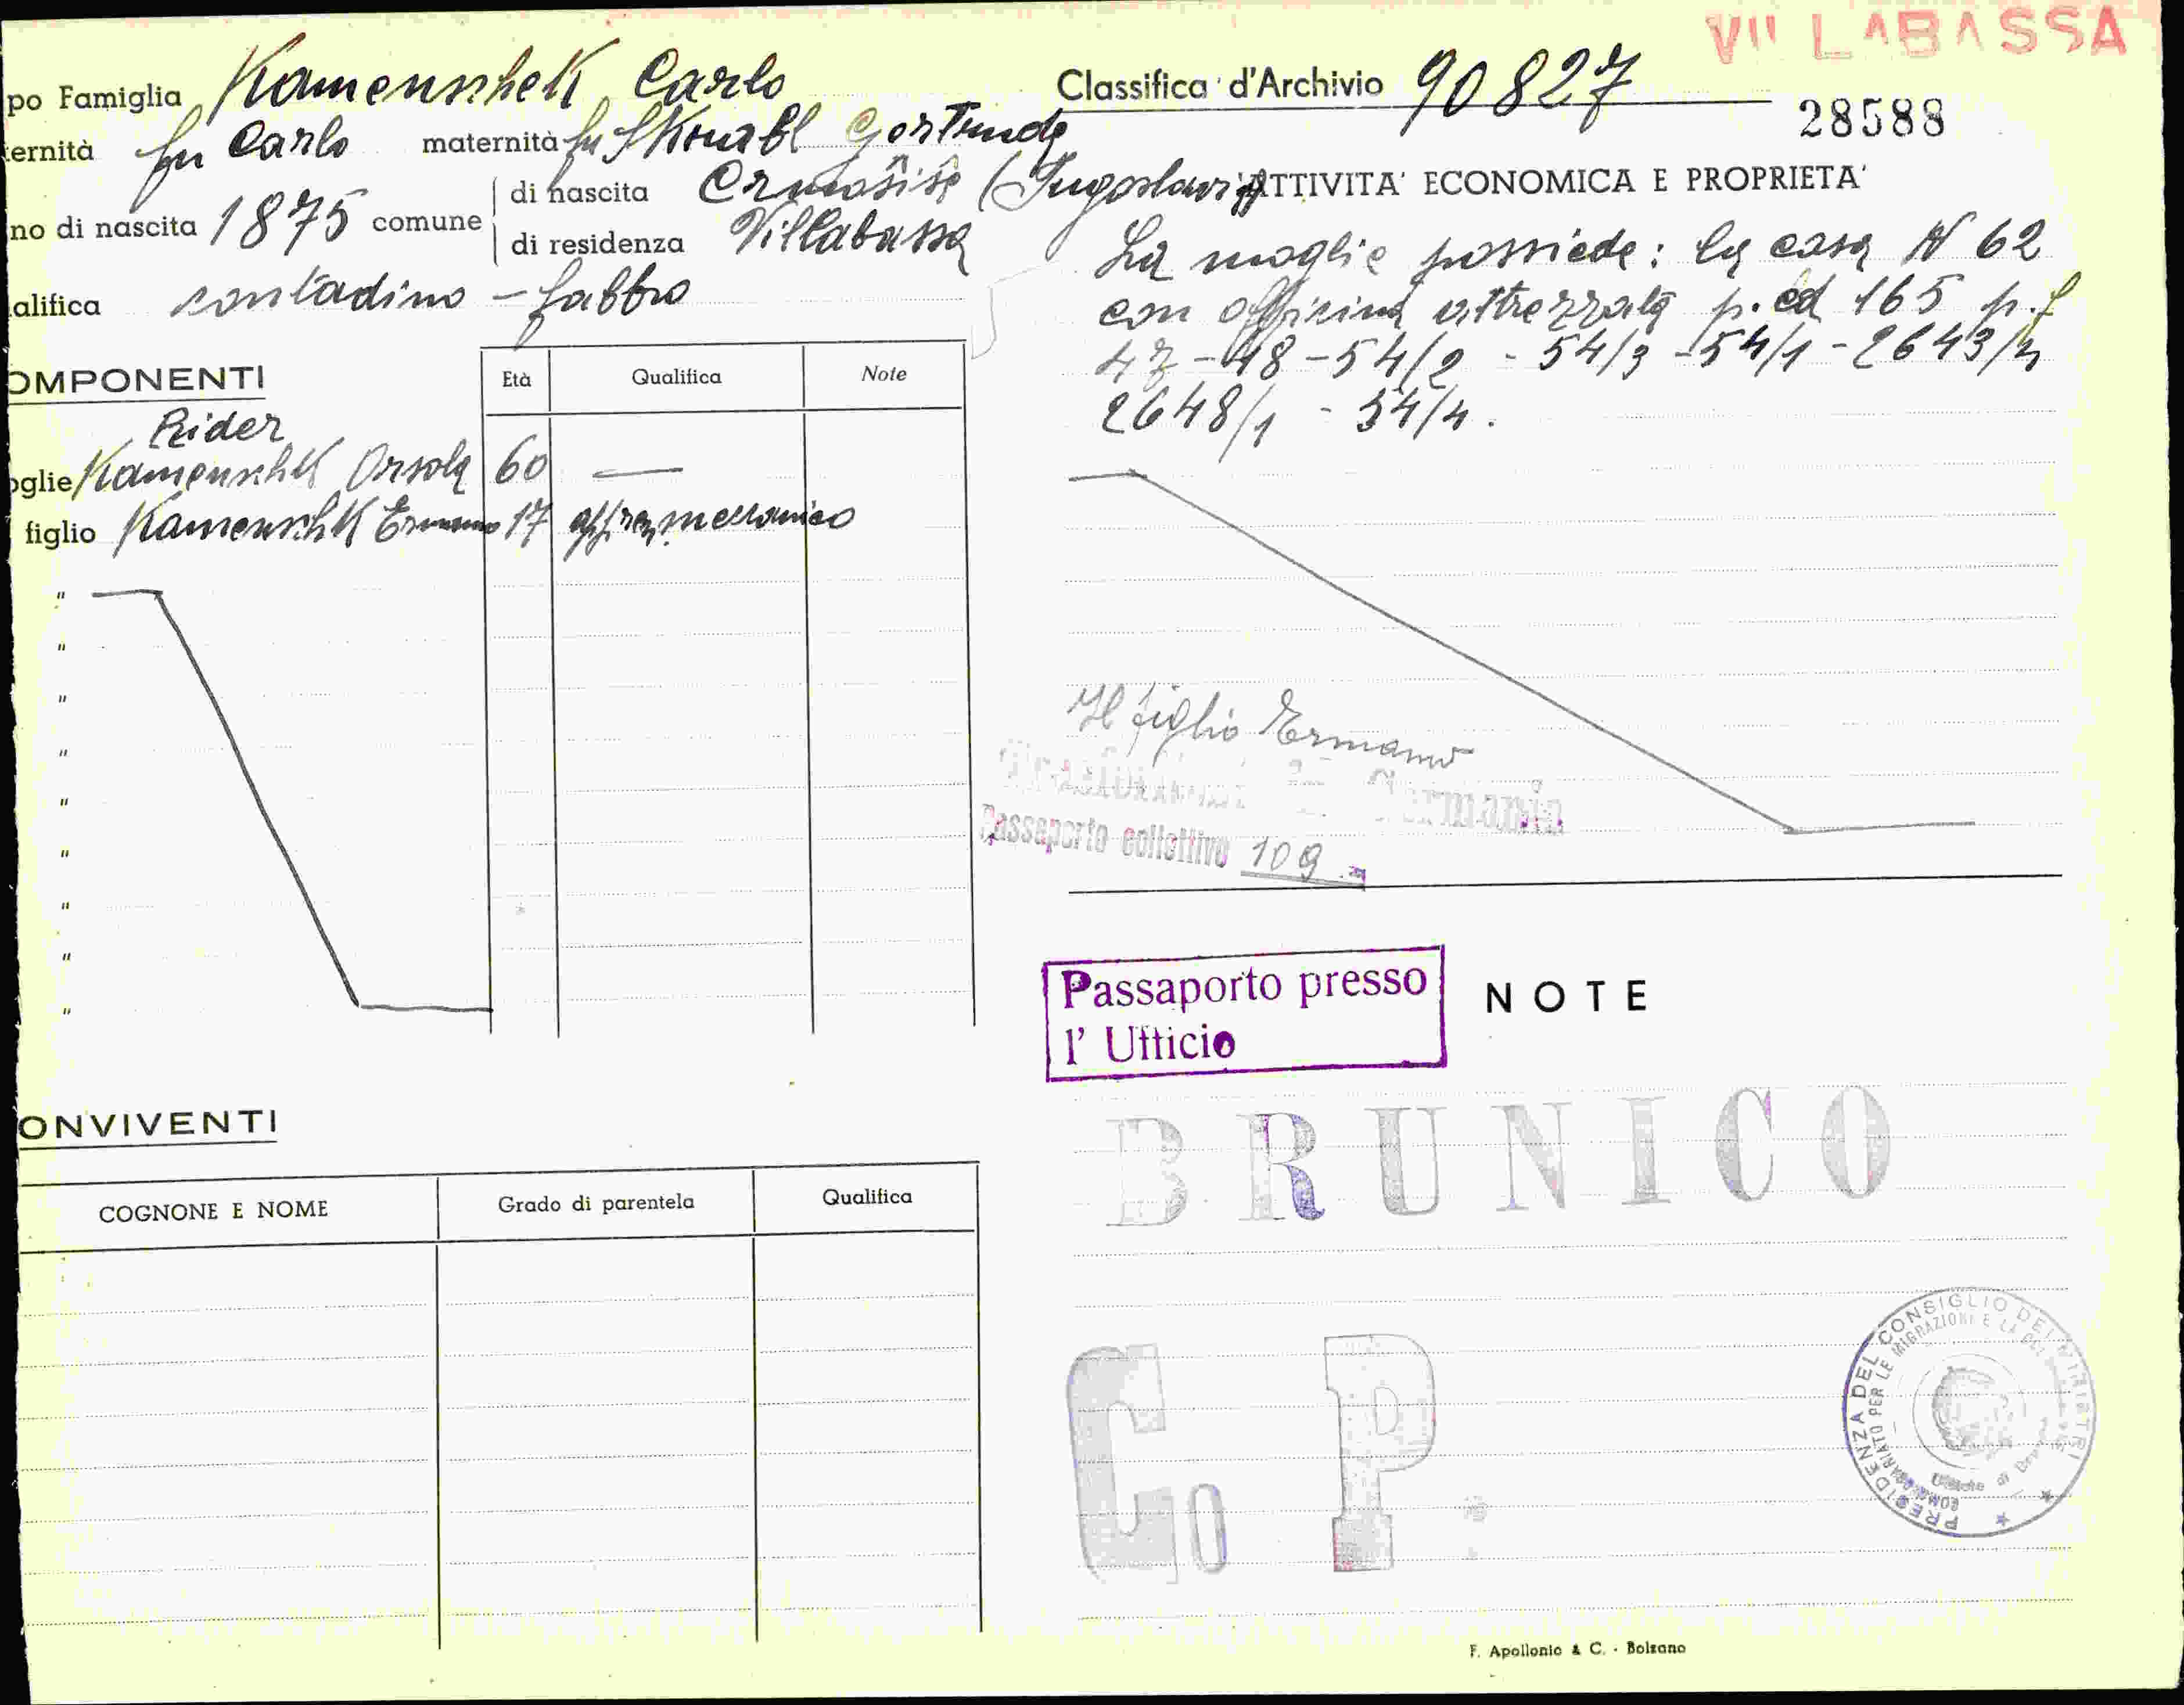 VILLABASSA
po Famiglia Kamenschek Carlo
Classifica d'Archivio 90827
28588
ernità fu Carlo maternità fu Gertrude
no di nascita 1875 comune
di nascita (Jugoslavia)
di residenza Villabassa
alifica contadino - fabbro
ATTIVITA' ECONOMICA E PROPRIETA'
La moglie possiede: la casa N 62
con officina attrezzata p. ed 165 p. f
47 - 48 - 54/2 - 54/3 - 54/1 - 2643/4
2648/1 - 54/4.
OMPONENTI
Età Qualifica Note
Rider
oglie Kamenschek Orsola 60 —
figlio Kamenschek Ermanno 17 appren. meccanico
"
"
"
"
"
"
"
"
"
Il figlio Ermanno
Germania
Passaporto collettivo 109
Passaporto presso
l' Ufficio
NOTE
BRUNICO
ONVIVENTI
COGNONE E NOME Grado di parentela Qualifica
Co P.
PRESIDENZA DEL CONSIGLIO DEI MINISTRI
MIGRAZIONI E LA
ROMA
F. Apollonio & C. - Bolzano